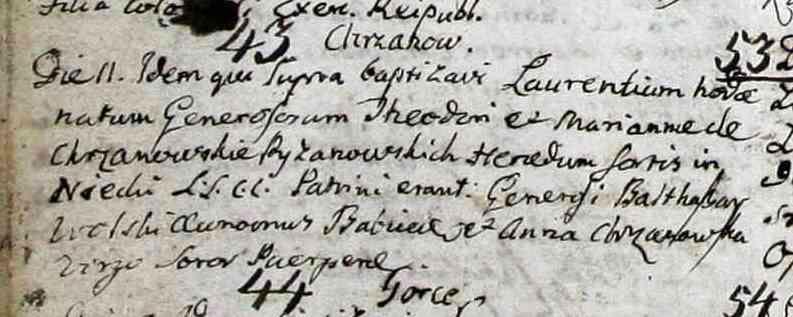 Filia Colo Exerc. Reipubl.
43 Chrzanow. 53
Die 11. Idem qui Supra baptizavi Laurentium hodie
natum Generosorum Theodori et Mariannae de
Chrzanowskie Ryzanowskich Heredum Sortis in
Niecki L.S.C.C. Patrini erant: Generosi Balthasar
Wolski et Anna Chrzanowska
Virgo Soror Puerperae
44 Gorce 54